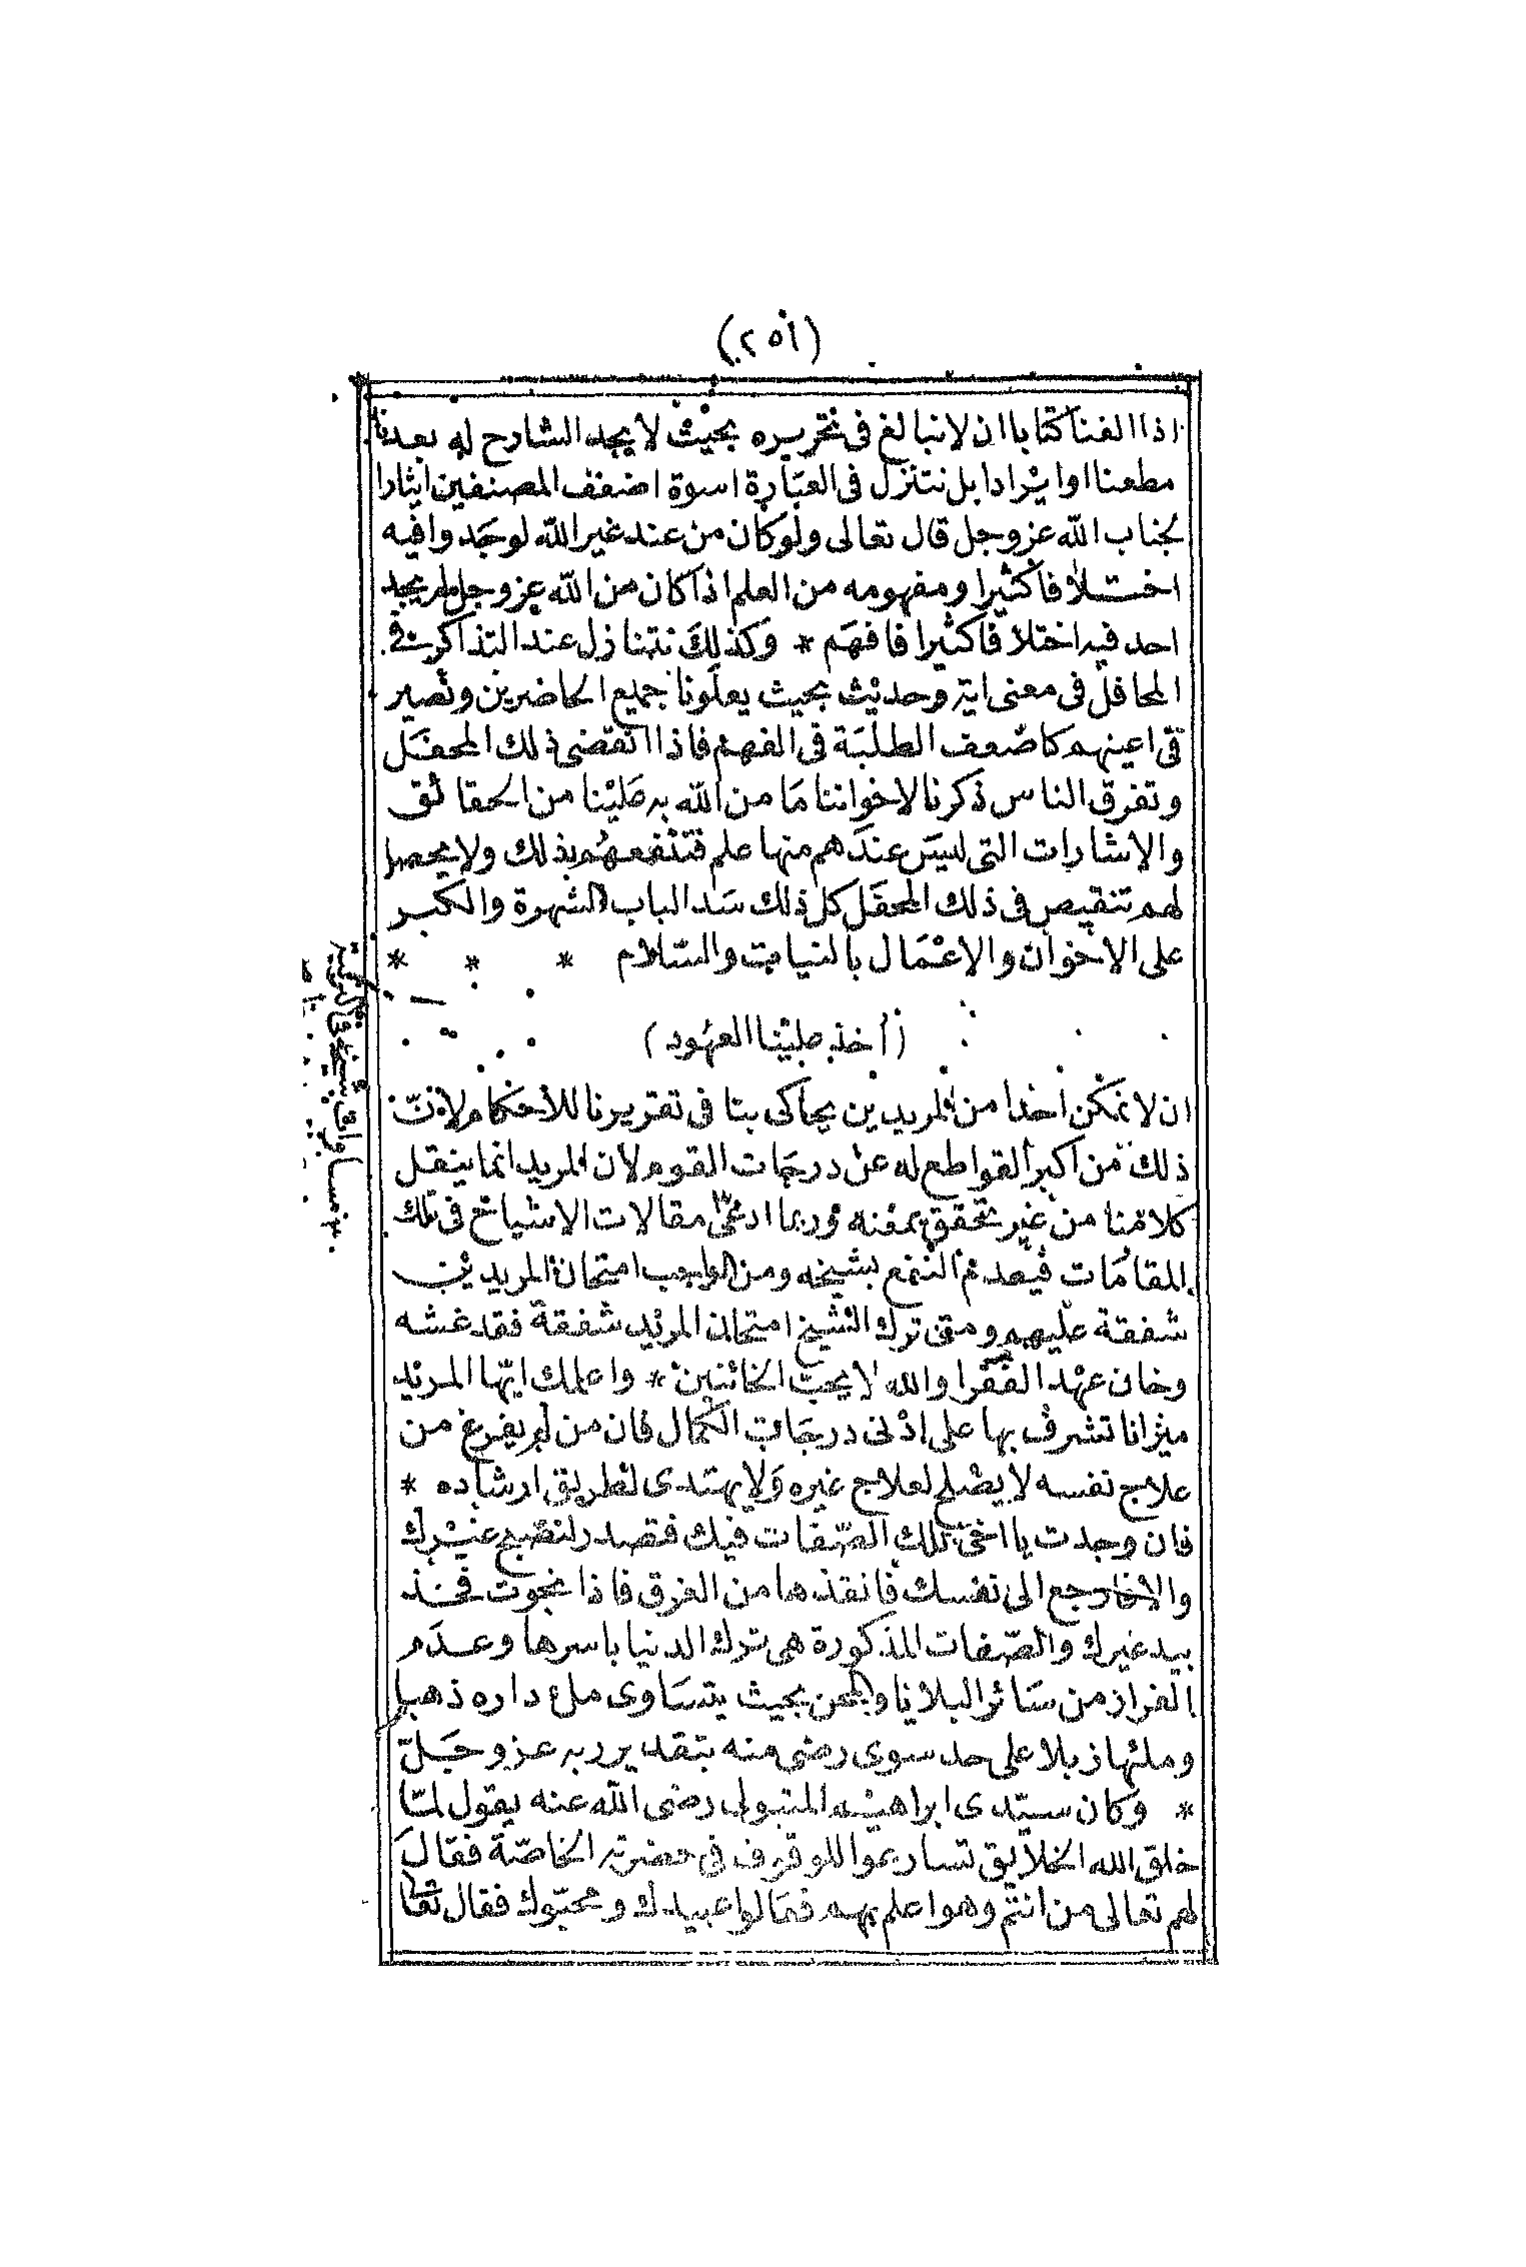 (٢٥١)
اذا الفنا كتابا ان لا نبالغ فى تحريره بحيث لا يجد الشارح له بعدنا
مطعنا او ايرادا بل نتنزل فى العبارة اسوة اضعف المصنفين ايثارا
لجناب الله عز وجل قال تعالى ولو كان من عند غير الله لوجدوا فيه
اختلافا كثيرا ومفهومه من العلم اذا كان من الله عز وجل لم يجد
احد فيه اختلافا كثيرا فافهم * وكذلك نتنازل عند التذاكر فى
المحافل فى معنى اية وحديث بحيث يعلونا جميع الحاضرين ونصير
فى اعينهم كاضعف الطلبة فى الفهم فاذا انقضى ذلك المحفل
وتفرق الناس ذكرنا لاخواننا ما من الله به علينا من الحقائق
والاشارات التى ليس عندهم منها علم فننفعهم بذلك ولا يحصل
لهم تنقيص فى ذلك المحفل كل ذلك سد الباب الشهرة والكبر
على الاخوان والاعمال بالنيات والسلام * * *
(أخذ علينا العهود)
ان لا نمكن احدا من المريدين يحاكى بنا فى تقريرنا للاحكام لان
ذلك من اكبر القواطع له عن درجات القوم لان المريد انما ينقل
كلامنا من غير تحقق بمعناه وربما ادعى مقالات الاشياخ فى تلك
المقامات فيعدم النفع بشيخه ومن الواجب امتحان المريدين
شفقة عليهم ومتى ترك الشيخ امتحان المريد شفقة فقد غشه
وخان عهد الفقرا والله لا يحب الخائنين * واعلمك ايها المريد
ميزانا تشرف بها على ادنى درجات الكمال فان من لم يفرغ من
علاج نفسه لا يصلح لعلاج غيره ولا يهتدى لطريق ارشاده *
فان وجدت يا اخى تلك الصفات فيك فتصدر لنصح غيرك
والا فارجع الى نفسك فانقذها من الغرق فاذا نجوت فخذ
بيد غيرك والصفات المذكورة هى ترك الدنيا باسرها وعدم
الفرار من سائر البلايا والمحن بحيث يتساوى ملء داره ذهبا
وملئها زبلا على حد سوى رضى منه بتقدير ربه عز وجل
* وكان سيدى ابراهيم المتبولى رضى الله عنه يقول لما
خلق الله الخلايق تسارعوا للوقوف فى حضرته الخاصة فقال
لهم تعالى من انتم وهو اعلم بهم فقالوا عبيدك ومحبوك فقال تعا